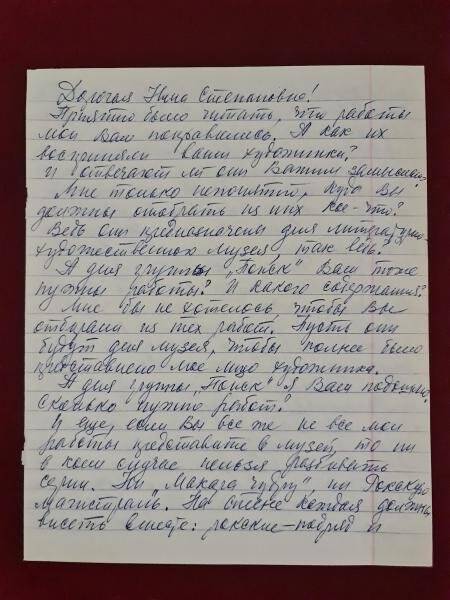 Дорогая Нина Степановна!
Приятно было читать, что работы
мои Вам понравились. А как их
восприняли ваши художники?
И отвечают ли они Вашим замыслам?
Мне только непонятно, куда Вы
должны отобрать из них кое-что?
Ведь они предназначены для литературно-
художественного музея, так ведь?
А для группы „Поиск" Вам тоже
нужны работы? И какого содержания?
Мне бы не хотелось, чтобы Вы
отбирали из тех работ. Пусть они
будут для музея, чтобы полнее было
представлено моё лицо художника.
А для группы „Поиск" я Вам подошлю.
Сколько нужно работ?
И ещё, если Вы всё же не все мои
работы представите в музей, то ни
в коем случае нельзя разбивать
серии. Ни „Макара Чудру", ни „Рокскую
магистраль". На стене каждая должна
висеть вместе: рокские – подряд и